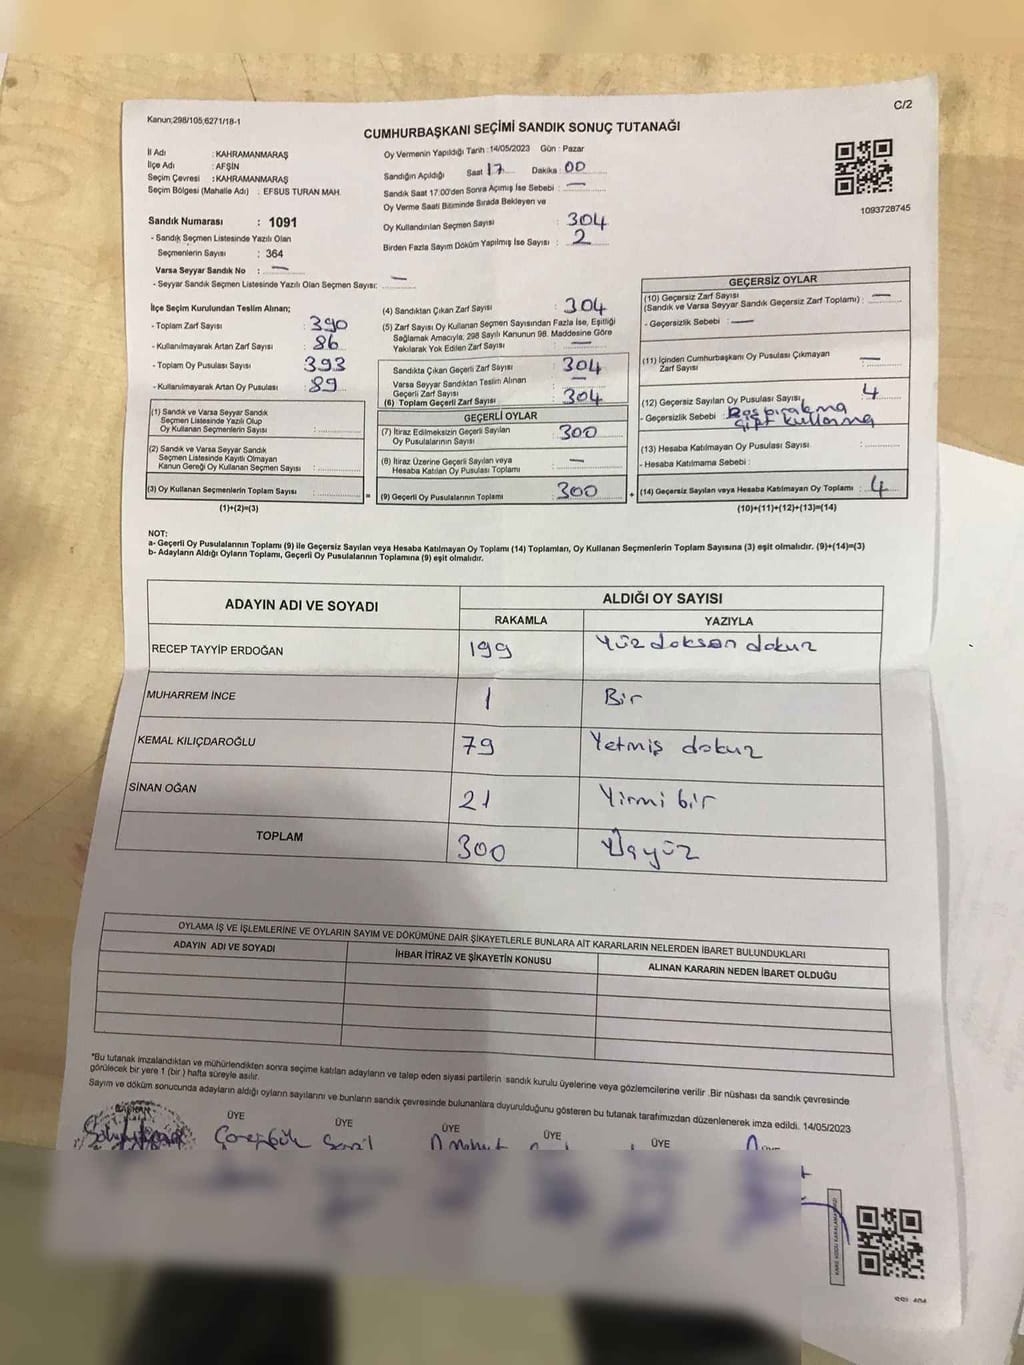 Kanun;298/105,6271/18-1
C/2
CUMHURBAŞKANI SEÇİMİ SANDIK SONUÇ TUTANAĞI
İl Adı : KAHRAMANMARAŞ
İlçe Adı : AFŞİN
Seçim Çevresi : KAHRAMANMARAŞ
Seçim Bölgesi (Mahalle Adı) : EFSUS TURAN MAH.
Sandık Numarası : 1091
- Sandık Seçmen Listesinde Yazılı Olan
Seçmenlerin Sayısı : 364
Varsa Seyyar Sandık No : —
- Seyyar Sandık Seçmen Listesinde Yazılı Olan Seçmen Sayısı: —
Oy Vermenin Yapıldığı Tarih : 14/05/2023 Gün : Pazar
Sandığın Açıldığı Saat 17 Dakika : 00
Sandık Saat 17.00'den Sonra Açımış İse Sebebi : —
Oy Verme Saati Bitiminde Sırada Bekleyen ve
Oy Kullandırılan Seçmen Sayısı : 304
Birden Fazla Sayım Döküm Yapılmış İse Sayısı : 2
1093728745
İlçe Seçim Kurulundan Teslim Alınan;
- Toplam Zarf Sayısı : 390
- Kullanılmayarak Artan Zarf Sayısı : 86
- Toplam Oy Pusulası Sayısı : 393
- Kullanılmayarak Artan Oy Pusulası : 89
(1) Sandık ve Varsa Seyyar Sandık
Seçmen Listesinde Yazılı Olup
Oy Kullanan Seçmenlerin Sayısı :
(2) Sandık ve Varsa Seyyar Sandık
Seçmen Listesinde Kayıtlı Olmayan
Kanun Gereği Oy Kullanan Seçmen Sayısı :
(3) Oy Kullanan Seçmenlerin Toplam Sayısı :
(1)+(2)=(3)
(4) Sandıktan Çıkan Zarf Sayısı : 304
(5) Zarf Sayısı Oy Kullanan Seçmen Sayısından Fazla İse, Eşitliği
Sağlamak Amacıyla; 298 Sayılı Kanunun 98. Maddesine Göre
Yakılarak Yok Edilen Zarf Sayısı : —
Sandıkta Çıkan Geçerli Zarf Sayısı : 304
Varsa Seyyar Sandıktan Teslim Alınan
Geçerli Zarf Sayısı : —
(6) Toplam Geçerli Zarf Sayısı : 304
GEÇERLİ OYLAR
(7) İtiraz Edilmeksizin Geçerli Sayılan
Oy Pusulalarının Sayısı : 300
(8) İtiraz Üzerine Geçerli Sayılan veya
Hesaba Katılan Oy Pusulası Toplamı : —
= (9) Geçerli Oy Pusulalarının Toplamı : 300
GEÇERSİZ OYLAR
(10) Geçersiz Zarf Sayısı
(Sandık ve Varsa Seyyar Sandık Geçersiz Zarf Toplamı) : —
- Geçersizlik Sebebi : —
(11) İçinden Cumhurbaşkanı Oy Pusulası Çıkmayan
Zarf Sayısı : —
(12) Geçersiz Sayılan Oy Pusulası Sayısı, : 4
- Geçersizlik Sebebi : Boş bırakma
çift kullanma
(13) Hesaba Katılmayan Oy Pusulası Sayısı :
- Hesaba Katılmama Sebebi :
+ (14) Geçersiz Sayılan veya Hesaba Katılmayan Oy Toplamı : 4
(10)+(11)+(12)+(13)=(14)
NOT:
a- Geçerli Oy Pusulalarının Toplamı (9) ile Geçersiz Sayılan veya Hesaba Katılmayan Oy Toplamı (14) Toplamları, Oy Kullanan Seçmenlerin Toplam Sayısına (3) eşit olmalıdır. (9)+(14)=(3)
b- Adayların Aldığı Oyların Toplamı, Geçerli Oy Pusulalarının Toplamına (9) eşit olmalıdır.
ADAYIN ADI VE SOYADI ALDIĞI OY SAYISI
RAKAMLA YAZIYLA
RECEP TAYYİP ERDOĞAN 199 Yüz doksan dokuz
MUHARREM İNCE 1 Bir
KEMAL KILIÇDAROĞLU 79 Yetmiş dokuz
SİNAN OĞAN 21 Yirmi bir
TOPLAM 300 Üçyüz
OYLAMA İŞ VE İŞLEMLERİNE VE OYLARIN SAYIM VE DÖKÜMÜNE DAİR ŞİKAYETLERLE BUNLARA AİT KARARLARIN NELERDEN İBARET BULUNDUKLARI
ADAYIN ADI VE SOYADI İHBAR İTİRAZ VE ŞİKAYETİN KONUSU ALINAN KARARIN NEDEN İBARET OLDUĞU
"Bu tutanak imzalandıktan ve mühürlendikten sonra seçime katılan adayların ve talep eden siyasi partilerin sandık kurulu üyelerine veya gözlemcilerine verilir .Bir nüshası da sandık çevresinde
görülecek bir yere 1 (bir ) hafta süreyle asılır.
Sayım ve döküm sonucunda adayların aldığı oyların sayılarını ve bunların sandık çevresinde bulunanlara duyurulduğunu gösteren bu tutanak tarafımızdan düzenlenerek imza edildi. 14/05/2023
BAŞKAN ÜYE ÜYE ÜYE ÜYE ÜYE ÜYE